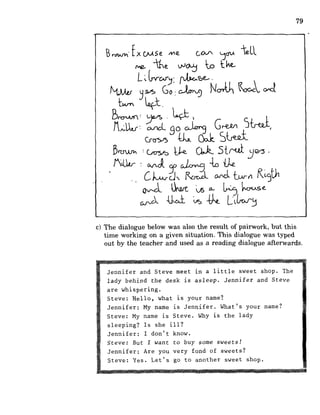 79
Brown: Excuse me can you tell
me the way to the
Library: please.
Miller yes Go: along North Road, and
turn left.
Brown: yes. left,
Miller: and go along Green Street,
cross the Oak Street
Brown: Cross the Oak Street yes.
Miller: and go along to the
Church Road and turn Right
and there is a big house
and that is the Library
c) The dialogue below was also the result of pairwork, but this
time working on a given situation. This dialogue was typed
out by the teacher and used as a reading dialogue afterwards.
Jennifer and Steve meet in a little sweet shop. The
lady behind the desk is asleep. Jennifer and Steve
are whispering.
Steve: Hello, what is your name?
Jennifer: My name is Jennifer. What's your name?
Steve: My name is Steve. Why is the lady
sleeping? Is she ill?
Jennifer: I don't know.
Steve: But I want to buy some sweets!
Jennifer: Are you very fond of sweets?
Steve: Yes. Let's go to another sweet shop.